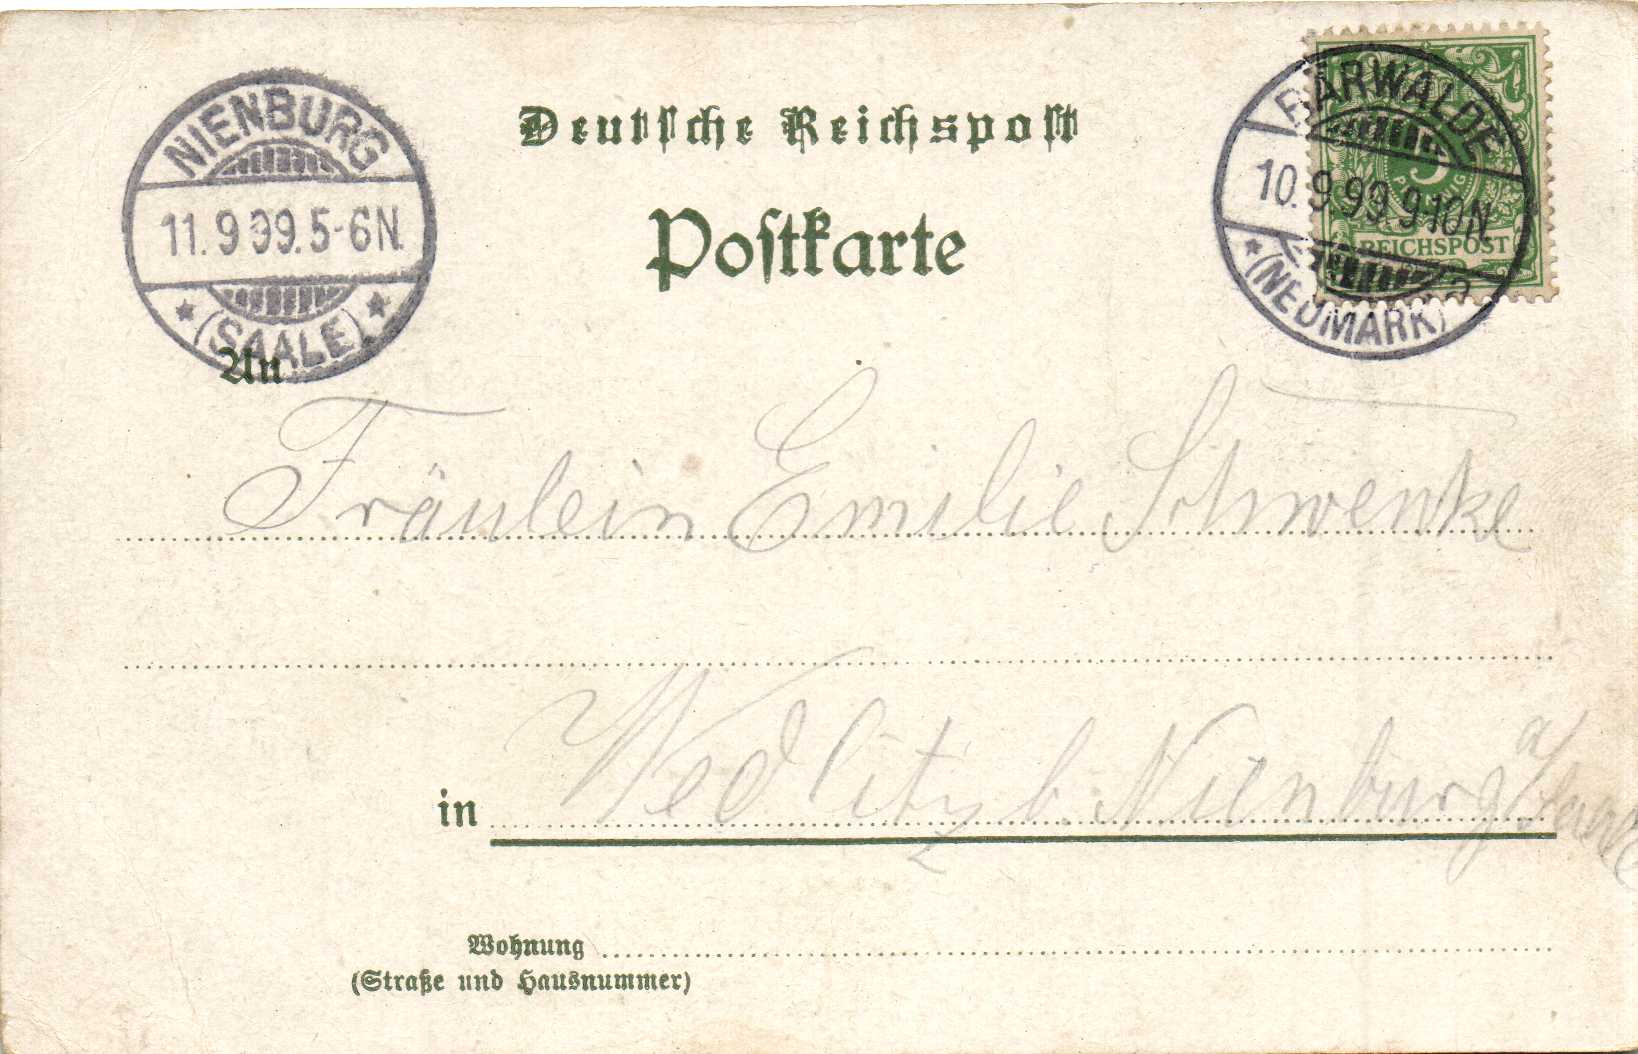 NIENBURG
11.9 99. 5-6N.
* (SAALE) *
BÄRWALDE
10. 9 99 9-10N.
* (NEUMARK)
5
PFENNIG
REICHSPOST
Deutsche Reichspost
Postkarte
An
Fräulein Emilie Schwenke
in Wedlitz b. Nienburg a/Saale
Wohnung
(Straße und Hausnummer)